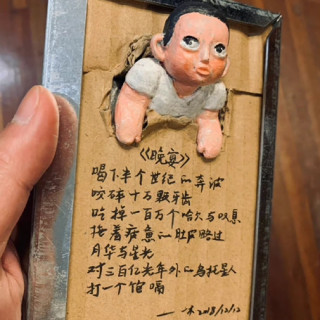 《晚宴》
喝下半个世纪的奔波
咬碎十万颗牙齿
吃掉一百万个哈欠与叹息
接着疲惫的肚皮略过
月华与星光
对三百亿光年外的乌托星人
打一个饱嗝
一沐 2018/12/12